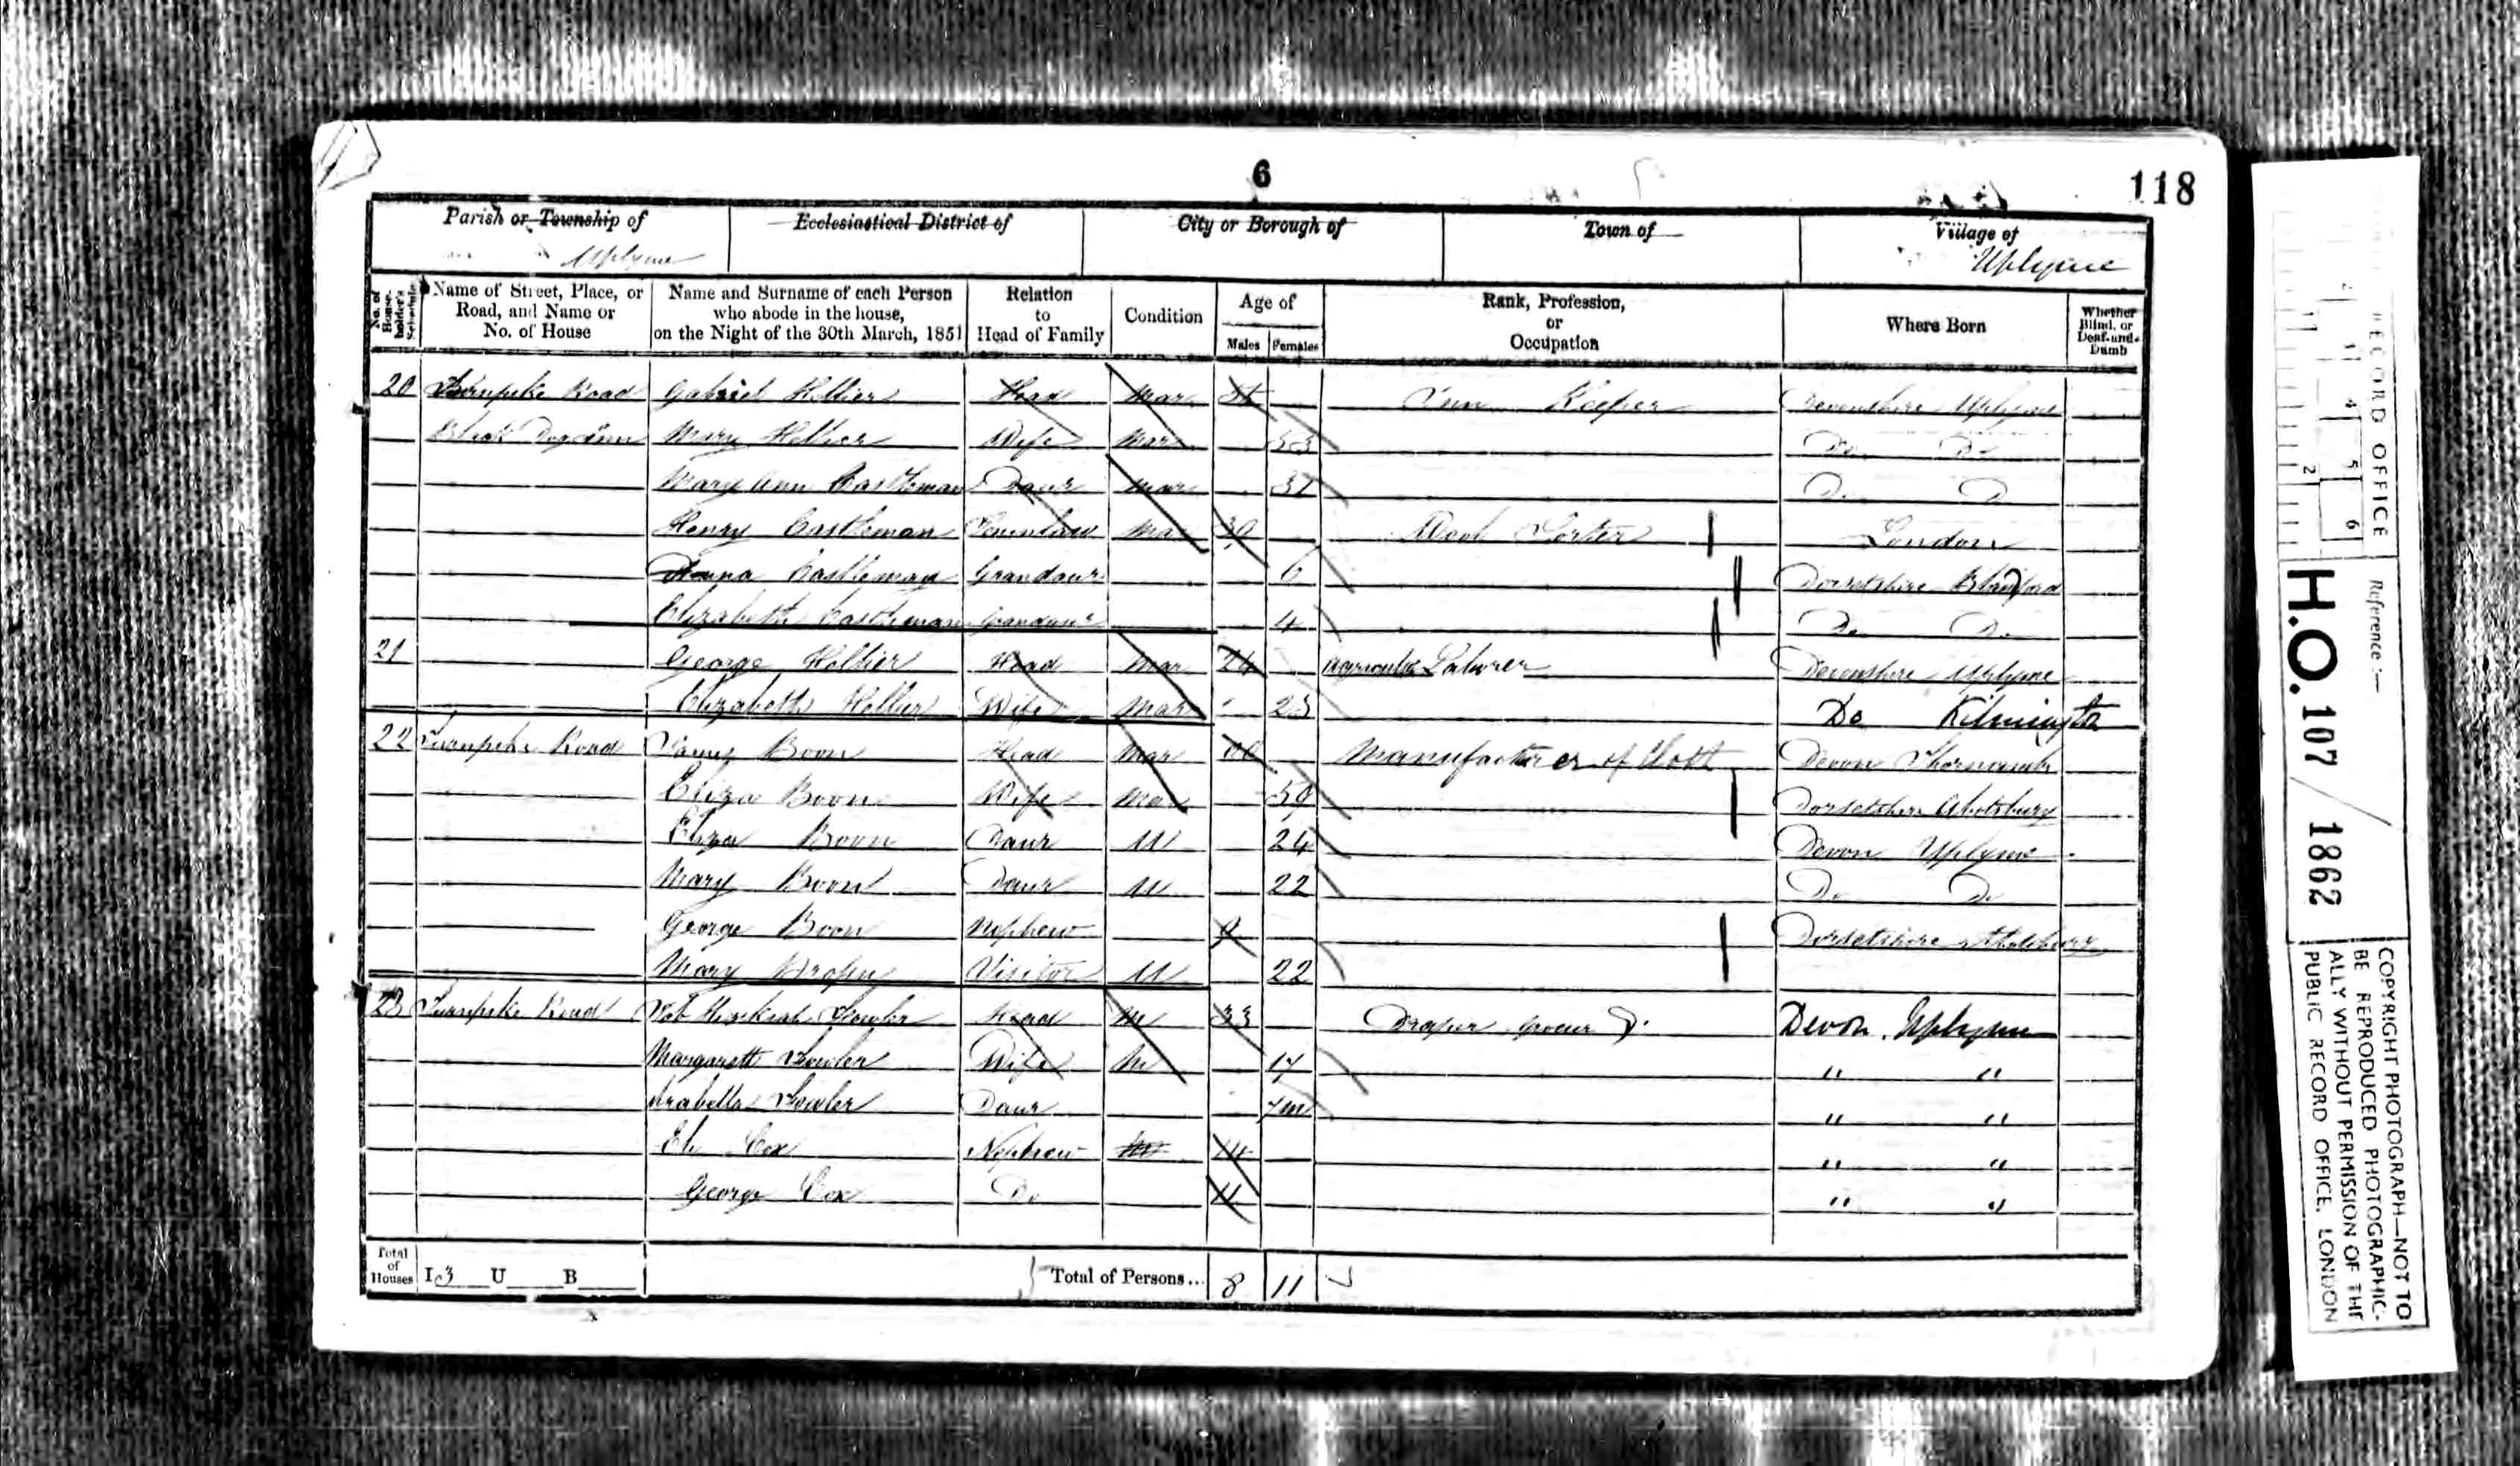 6
118
Parish or Township of Ecclesiastical District of City or Borough of Town of Village of
Uplyme Uplyme
No. of House-holder's Schedule Name of Street, Place, or Road, and Name or No. of House Name and Surname of each Person who abode in the house, on the Night of the 30th March, 1851 Relation to Head of Family Condition Age of Males Females Rank, Profession, or Occupation Where Born Whether Blind, or Deaf-and-Dumb
20 Turnpike Road Gabriel Hellier Head Mar Inn Keeper Devonshire Uplyme
Black Dog Inn Mary Hellier Wife Mar 53 Do Do
Mary Ann Castleman Daur Mar 31 Do Do
Henry Castleman Mar 30 Wool Sorter London
Castleman Grandaur 6 Dorsetshire Blandford
Elizabeth Castleman Grandaur 4 Do Do
21 George Hellier Head Mar 24 Labourer Devonshire Uplyme
Elizabeth Hellier Wife Mar 23 Do Kilmington
22 Turnpike Road James Boon Head Mar Manufacturer of Cloth Devon
Eliza Boon Wife Mar Dorsetshire Abbotsbury
Eliza Boon Daur U 24 Devon Uplyme
Mary Boon Daur U 22 Do Do
George Boon Nephew Dorsetshire
Mary Visitor U 22
23 Turnpike Road Fowler Head M 33 Draper Devon Uplyme
Margarett Fowler Wife M " "
Arabella Fowler Daur 7m " "
Cox Nephew 14 " "
George Cox Do 11 " "
Total of Houses I 3 U B Total of Persons... 8 11
RECORD OFFICE
1 2 4 5 6
Reference :—
H.O. 107 / 1862
COPYRIGHT PHOTOGRAPH—NOT TO
BE REPRODUCED PHOTOGRAPHIC-
ALLY WITHOUT PERMISSION OF THE
PUBLIC RECORD OFFICE, LONDON